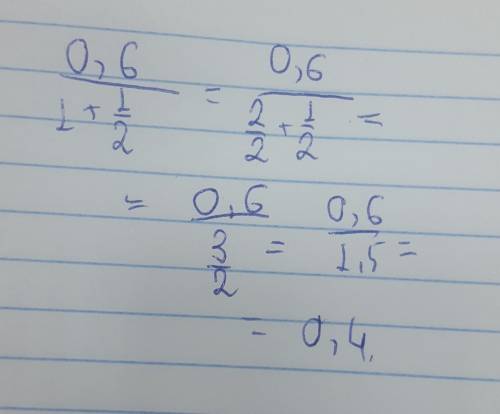 0,6 / (1 + 1/2) = 0,6 / (2/2 + 1/2) =
= 0,6 / (3/2) = 0,6 / 1,5 =
= 0,4.